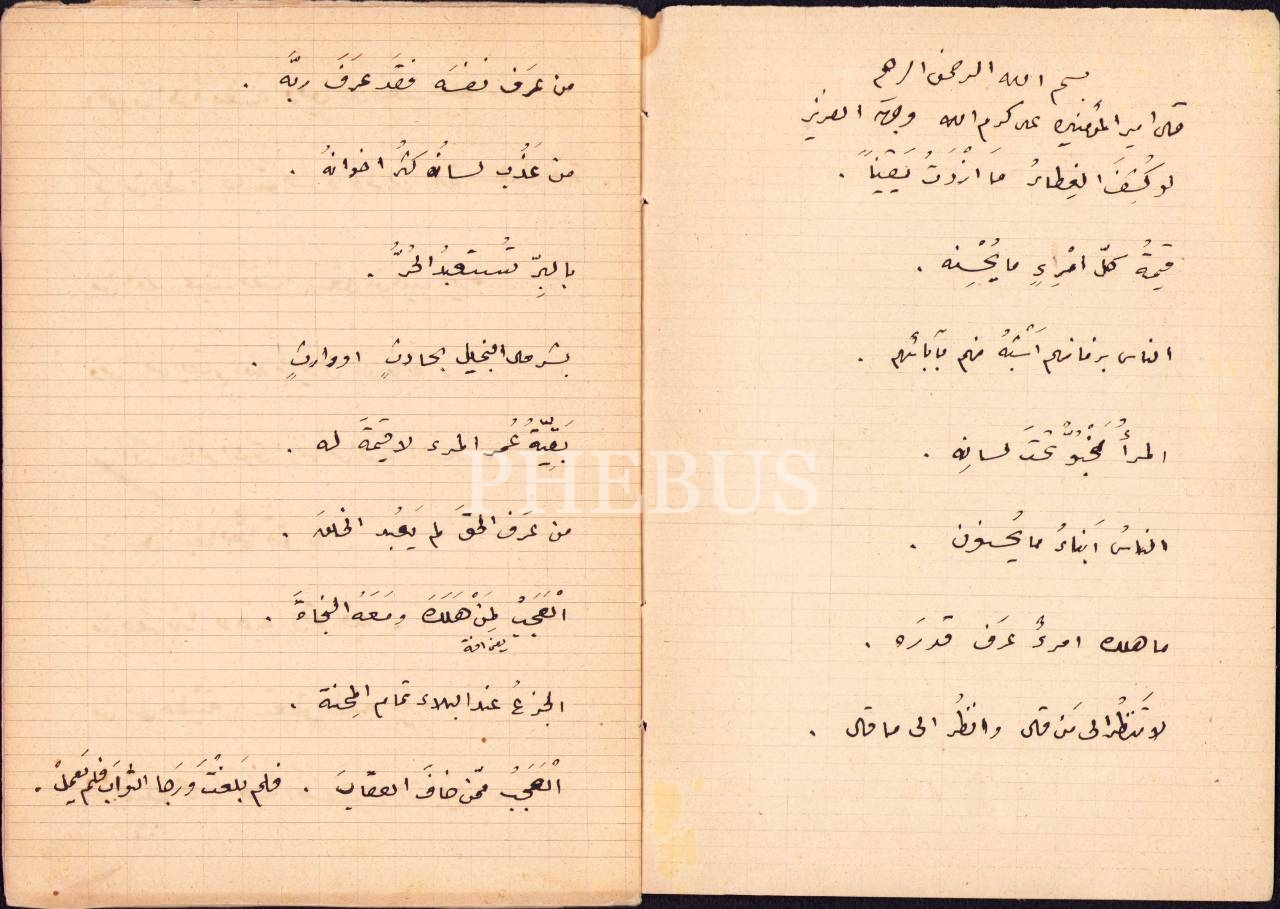 بسم الله الرحمن الرحيم
قال امير المؤمنين على كرم الله وجهه العزيز
لو كُشِفَ الغِطاءُ مَا ازْدَدتُ يَقيناً .
قيمةُ كلّ امْرِءٍ ما يُحْسِنه .
الناس بزمانهم اَشْبَهُ منهم بآبائهم .
المرأُ مَخْبُوٌّ تحْتَ لسانِه .
الناسُ اَبناءُ ما يُحسنون .
ما هلك امرءٌ عرَف قدرَه .
لا تَنظُر الى مَن قال وانظُر الى ما قال .
من عَرَف نفسَه فقَد عَرَفَ ربَّه .
من عَذُب لسانُه كثُر اخوانهُ .
بالبِرِّ تُستعبدُ الحُرُّ .
بشر مال البخيل بحادثٍ او وارثٍ .
بَقِيَّةُ عُمر المرء لا قيمَةَ له .
من عَرَف الحقَّ لم يَعْبُد الخلقَ .
اَلْعَجَبُ لِمَنْ هَلَكَ ومَعَهُ النجاةَ .
الجزعُ عند البلاء تمام المِحنة .
اَلْعَجَبُ ممّن خافَ العقابَ . فلم وَرَجا الثوابَ فلم يَعملْ .
PHEBUS